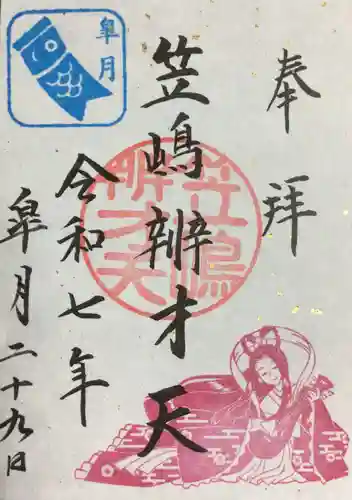 奉拝
笠嶋辨才天
令和七年
皐月二十九日
皐月
笠嶋
辨才天